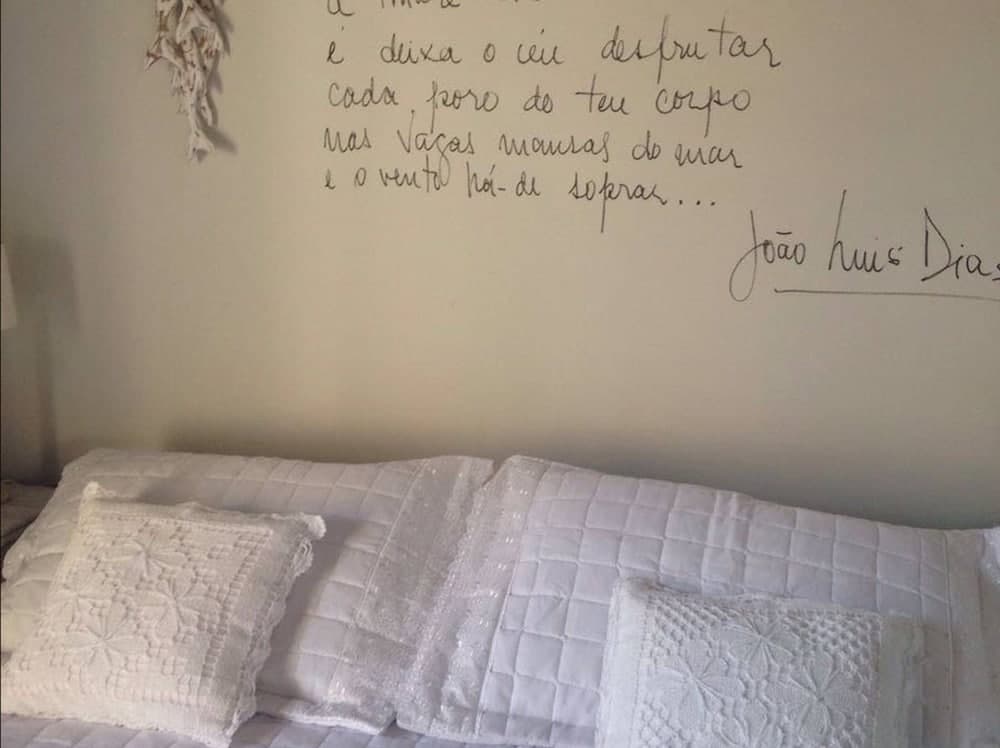 é deixa o céu desfrutar
cada poro do teu corpo
nas vagas mansas do mar
e o vento há-de soprar...
João Luis Dias